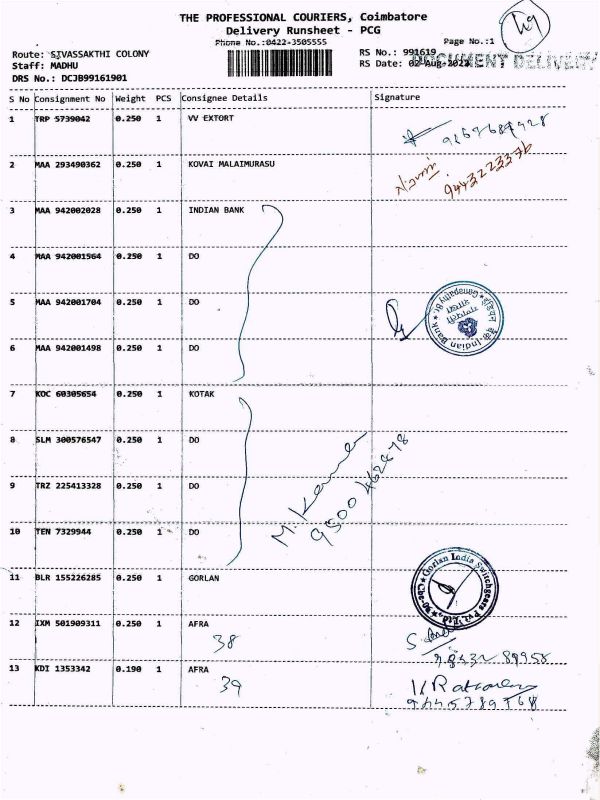 THE PROFESSIONAL COURIERS, Coimbatore
Delivery Runsheet - PCG
Phone No.:0422-3505555
Page No.:1
49
Route: SIVASSAKTHI COLONY
RS No.: 991619
Staff: MADHU
RS Date: 02-Aug-2022
DOCUMENT DELIVERY
DRS No.: DCJB99161901
S No Consignment No Weight PCS Consignee Details Signature
1 TRP 5739042 0.250 1 VV EXTORT
2 MAA 293490362 0.250 1 KOVAI MALAIMURASU
9443223376
3 MAA 942002028 0.250 1 INDIAN BANK
4 MAA 942001564 0.250 1 DO
5 MAA 942001704 0.250 1 DO
Indian Bank
6 MAA 942001498 0.250 1 DO
7 KOC 60305654 0.250 1 KOTAK
8 SLM 300576547 0.250 1 DO
9 TRZ 225413328 0.250 1 DO
10 TEN 7329944 0.250 1 DO
11 BLR 155226285 0.250 1 GORLAN
Gorlan India Switchgears Pvt. Ltd.
12 IXM 501909311 0.250 1 AFRA
38
13 KDI 1353342 0.190 1 AFRA
39